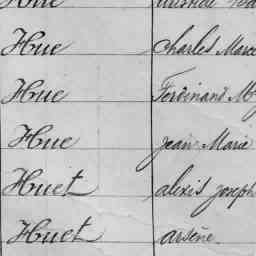 Hue
Hue Charles Marce
Hue Ferdinand
Hue Jean Marie
Huet alexis joseph
Huet arsène